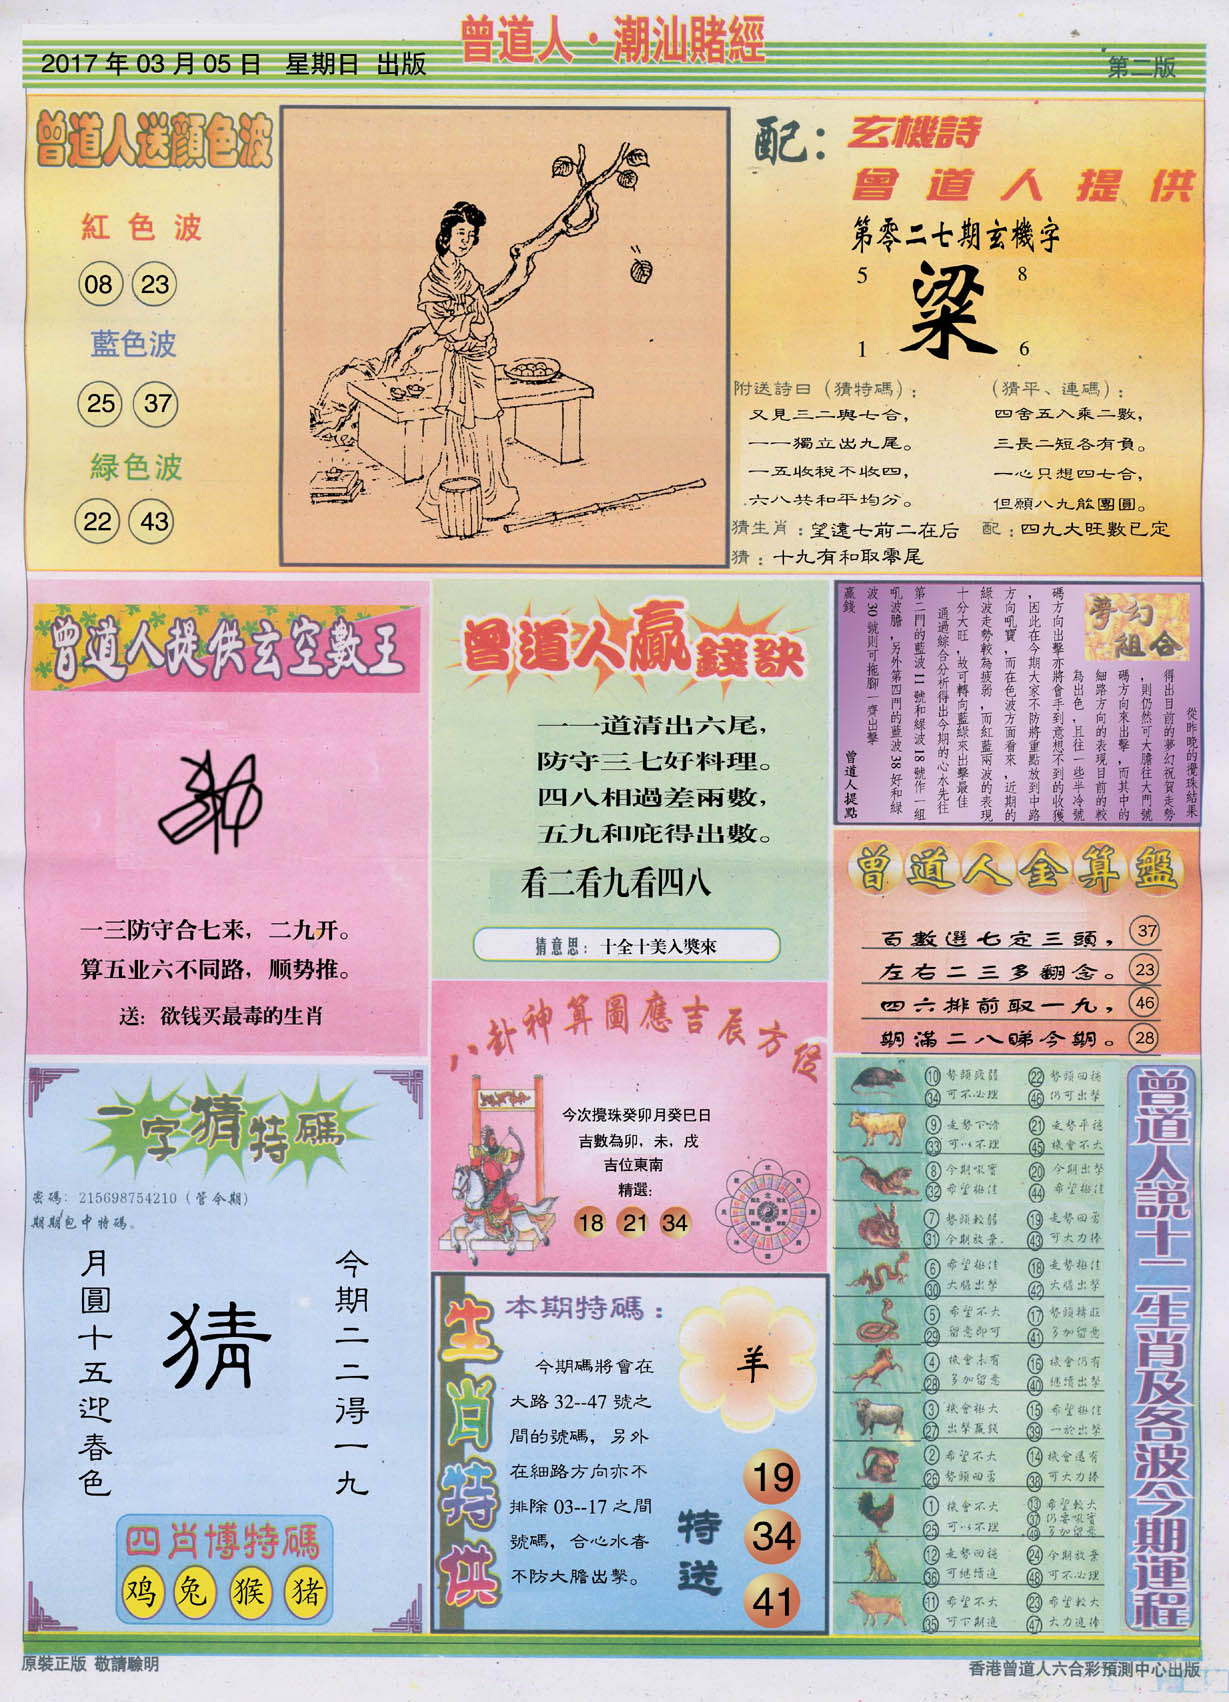 曾道人·潮汕賭經
2017 年 03 月 05 日 星期日 出版
第二版
曾道人送顏色波
紅色波
08 23
藍色波
25 37
緑色波
22 43
配：玄機詩
曾道人提供
第零二七期玄機字
5 8
梁
1 6
附送詩曰（猜特碼）：
又見三二與七合，
一一獨立出九尾。
一五收稅不收四，
六八共和平均分。
（猜平、連碼）：
四舍五入乘二數，
三長二短各有負。
一心只想四七合，
但願八九能團圓。
猜生肖：望遠七前二在后
配：四九大旺數已定
猜：十九有和取零尾
曾道人提供玄空數王
一三防守合七来，二九开。
算五业六不同路，顺势推。
送：欲钱买最毒的生肖
曾道人赢錢訣
一一道清出六尾，
防守三七好料理。
四八相過差兩數，
五九和庇得出數。
看二看九看四八
猜意思：十全十美入獎來
夢幻
組合
從昨晚的攪珠結果
得出目前的夢幻祝賀走勢
，則仍然可大膽往大門號
碼方向來出擊，而其中的
細路方向的表現目前的較
為出色，且往一些半冷號
碼方向出擊亦將會手到意想不到的收獲
，因此在今期大家不防將重點放到中路
方向吼寶，而在色波方面看來，近期的
綠波走勢較為疲弱，而紅藍兩波的表現
十分大旺，故可轉向藍綠來出擊最佳
通過綜合分析得出今期的心水先往
第二門的藍波 11 號和綠波 18 號作一組
吼波膽，另外第四門的藍波 38 好和綠
波 30 號則可拖腳一齊出擊
贏錢
曾道人提點
曾道人金算盤
百數選七定三頭， 37
左右二三多翻念。 23
四六排前取一九， 46
期滿二八睇今期。 28
八卦神算圖應吉辰方位
今次攪珠癸卯月癸巳日
吉數為卯，未，戌
吉位東南
精選：
18 21 34
一字猜特碼
密碼：215698754210（管今期）
期期包中特碼。
今期二二得一九
猜
月圓十五迎春色
四肖博特碼
鸡 兔 猴 猪
生肖特供
本期特碼：
今期碼將會在
大路 32--47 號之
間的號碼，另外
在細路方向亦不
排除 03--17 之間
號碼，合心水者
不防大膽出擊。
羊
特送
19
34
41
曾道人説十二生肖及各波今期運程
10 勢頭疲弱 22 勢頭回穩
34 可不必理 46 仍可出擊
9 走勢下滑 21 走勢平穩
33 可以不理 45 機會不大
8 今期吼寶 20 今期出擊
32 希望極佳 44 希望極佳
7 勢頭較弱 19 走勢回勇
31 今期放棄 43 可大力捧
6 希望極佳 18 走勢極佳
30 大膽出擊 42 大膽出擊
5 希望不大 17 勢頭轉旺
29 留意即可 41 多加留意
4 機會未有 16 機會仍有
28 多加留意 40 繼續出擊
3 機會極大 15 希望極佳
27 出擊贏錢 39 一於出擊
2 希望不大 14 機會還有
26 勢頭回勇 38 可大力捧
1 機會不大 13 希望較大
25 可以不理 37 仍要吼寶
49 多加留意
12 走勢回穩 24 今期放棄
36 可繼續追 48 可不必理
11 希望不大 23 希望較大
35 可下期進 47 大力進捧
原裝正版 敬請驗明
香港曾道人六合彩預測中心出版